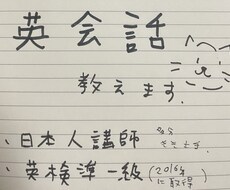 英会話
教えます.
・日本人講師
・英検準一級(2016年に取得)